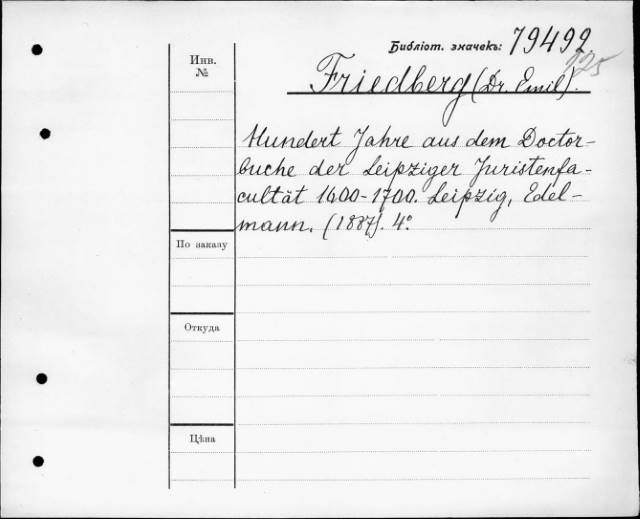 Библіот. значекъ: 79492
225
Инв.
№
Friedberg (Dr. Emil).
Hundert Jahre aus dem Doctor-
buche der Leipziger Juristenfa-
cultät 1600-1700. Leipzig, Edel-
mann. (1887). 4°.
По заказу
Откуда
Цѣна